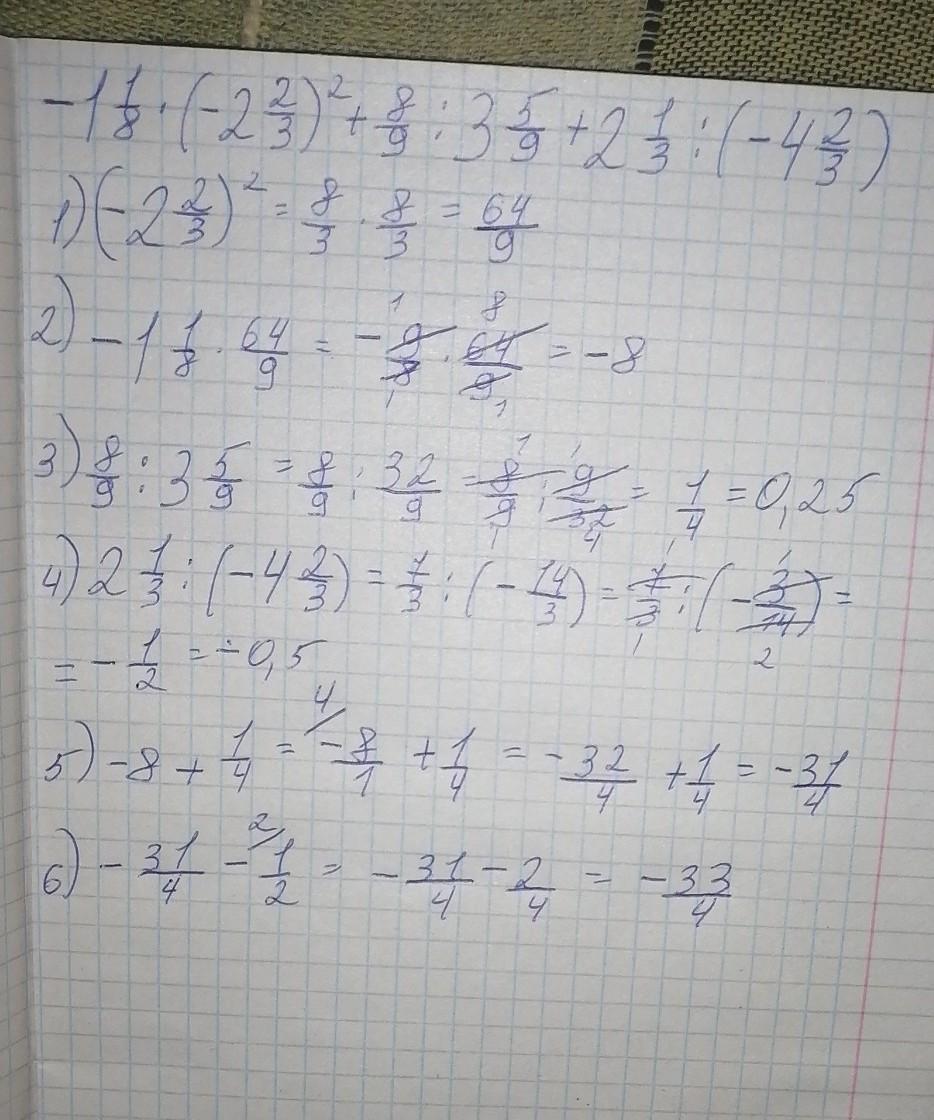 -1 1/8 · (-2 2/3)² + 8/9 : 3 5/9 + 2 1/3 : (-4 2/3)
1) (-2 2/3)² = 8/3 · 8/3 = 64/9
2) -1 1/8 · 64/9 = - 9/8 · 64/9 = -8
3) 8/9 : 3 5/9 = 8/9 : 32/9 = 8/9 : 9/32 = 1/4 = 0,25
4) 2 1/3 : (-4 2/3) = 7/3 : (- 14/3) = 7/3 : (- 3/14) =
= - 1/2 = -0,5
5) -8 + 1/4 = -8/1 + 1/4 = - 32/4 + 1/4 = - 31/4
6) - 31/4 - 1/2 = - 31/4 - 2/4 = - 33/4